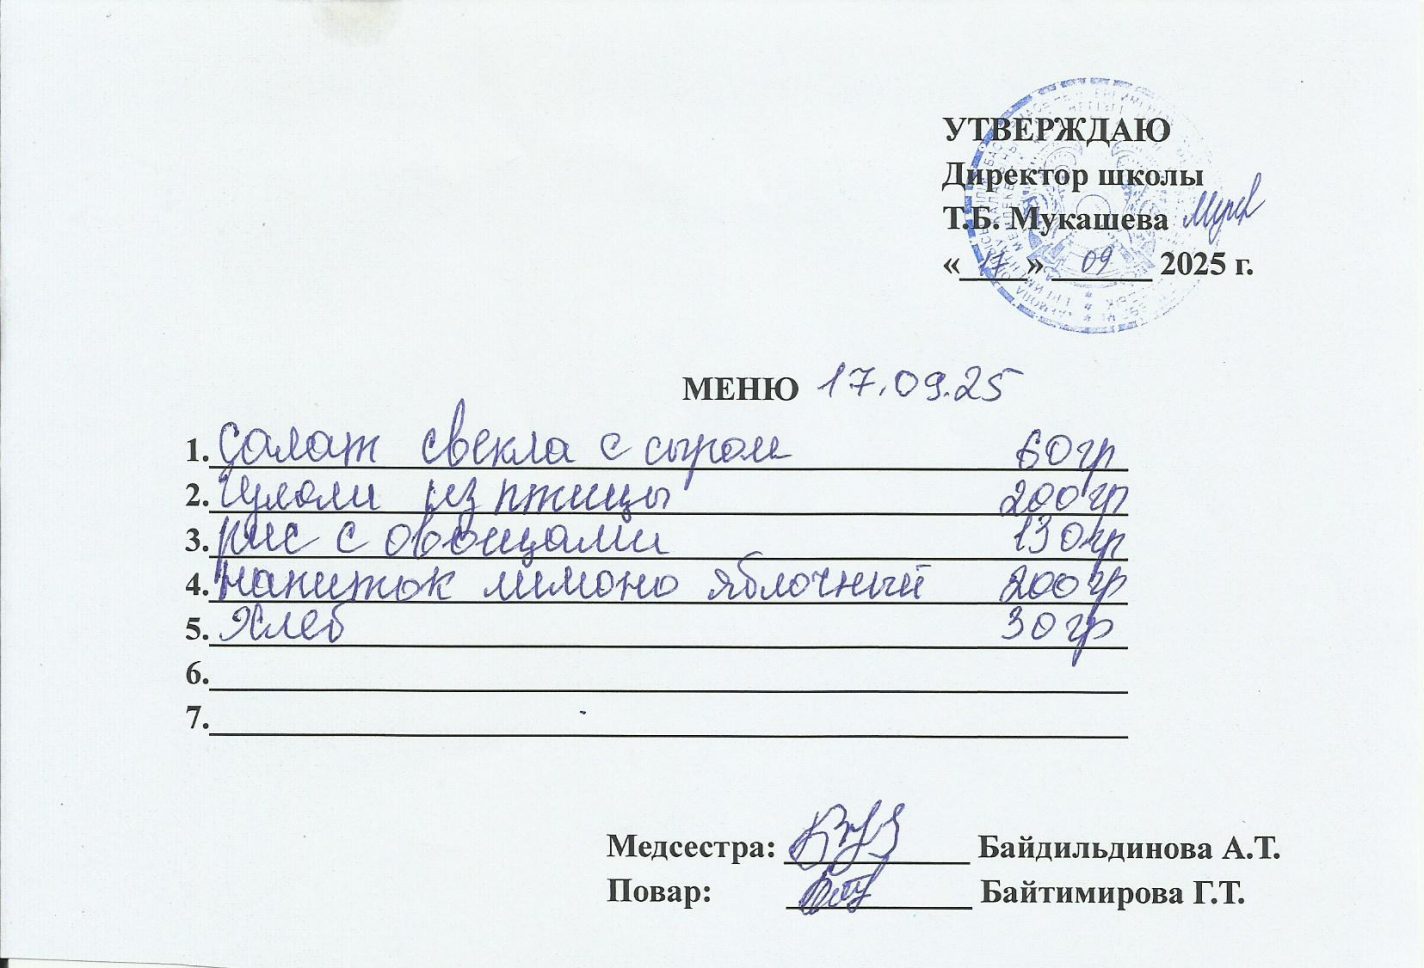 УТВЕРЖДАЮ
Директор школы
Т.Б. Мукашева
« 17 » 09 2025 г.
МЕНЮ 17.09.25
1. Салат свекла с сыром 60гр
2. Гуляш из птицы 200гр
3. рис с овощами 130гр
4. Напиток лимоно яблочный 200гр
5. Хлеб 30гр
6.
7.
Медсестра: Байдильдинова А.Т.
Повар: Байтимирова Г.Т.